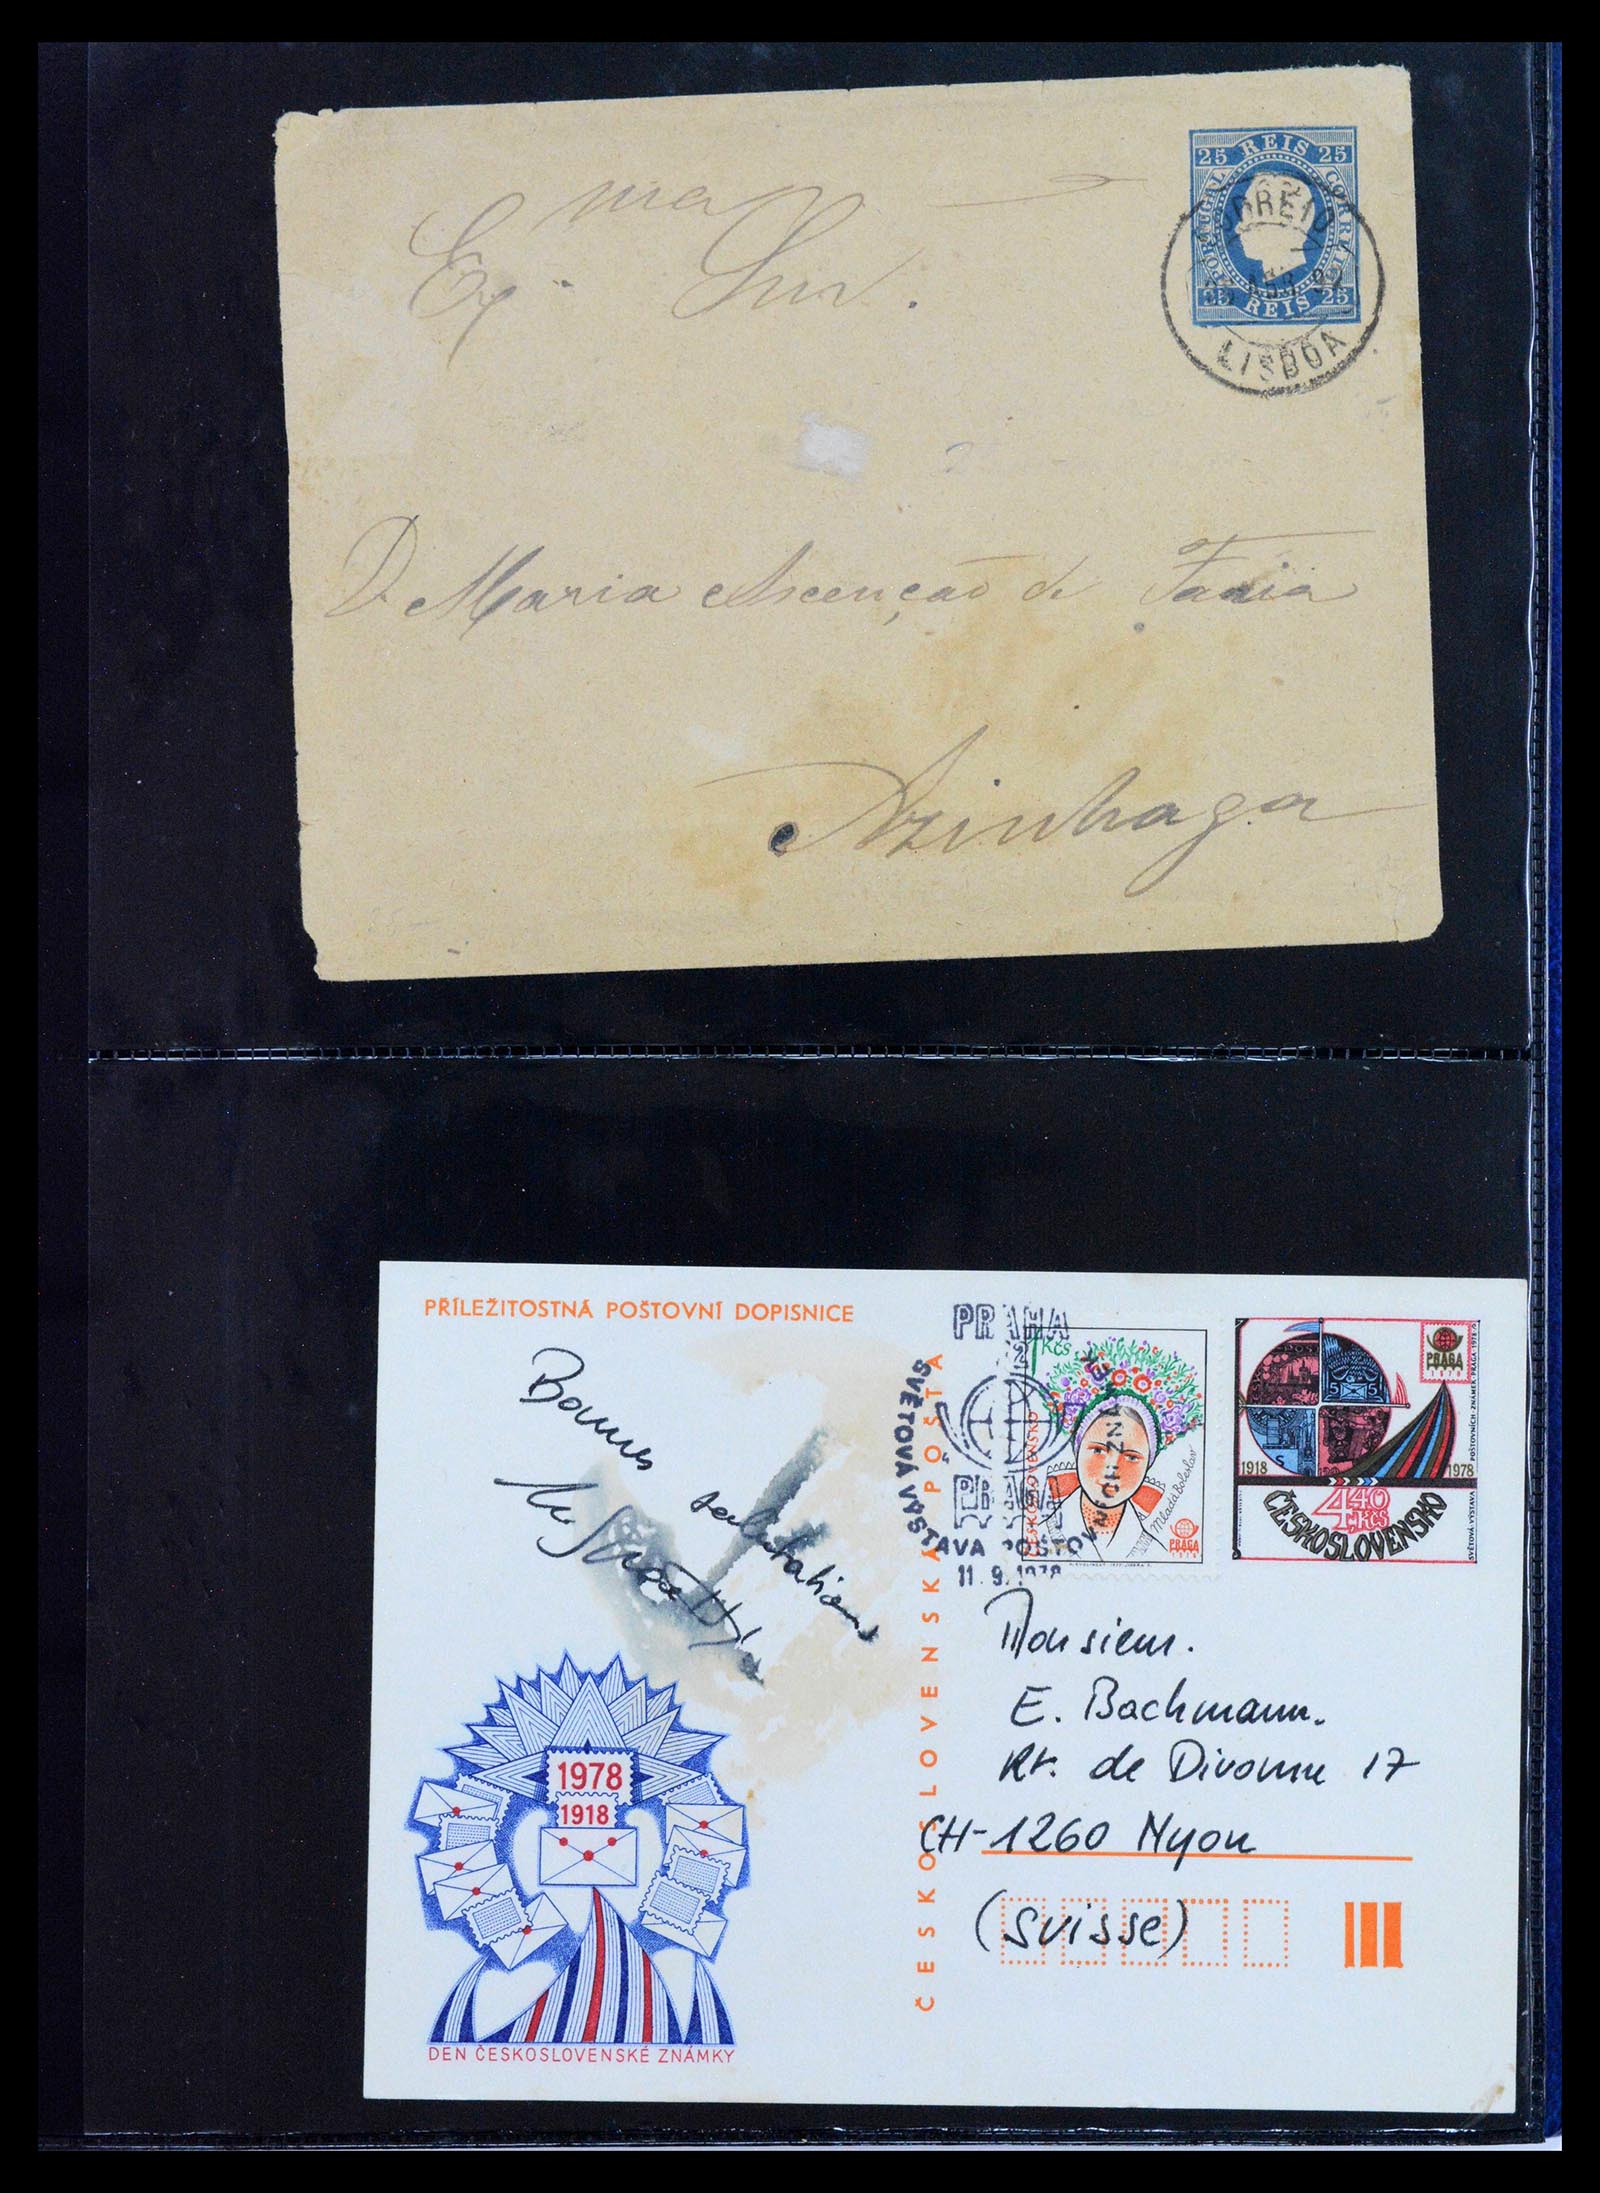 25 REIS 25
PORTUGAL
CORREIO
25 REIS 25
LISBOA
Exma Snra.
D. Maria Ascenção de Faria
Azinhaga
PŘÍLEŽITOSTNÁ POŠTOVNÍ DOPISNICE
Bonnes salutations
ČESKOSLOVENSKÁ POŠTA
PRAHA
PRAGA
SVĚTOVÁ VÝSTAVA POŠTOVNÍCH ZNÁMEK
11.9.1978
1 Kčs
ČESKOSLOVENSKO
Mladá Boleslav
PRAGA
1978
PRAGA
1978
1918 1978
4,40 Kčs
ČESKOSLOVENSKO
SVĚTOVÁ VÝSTAVA POŠTOVNÍCH ZNÁMEK PRAGA 1978
Monsieur.
E. Bachmann.
Rt. de Divonne 17
CH-1260 Nyon
(Suisse)
1978
1918
DEN ČESKOSLOVENSKÉ ZNÁMKY